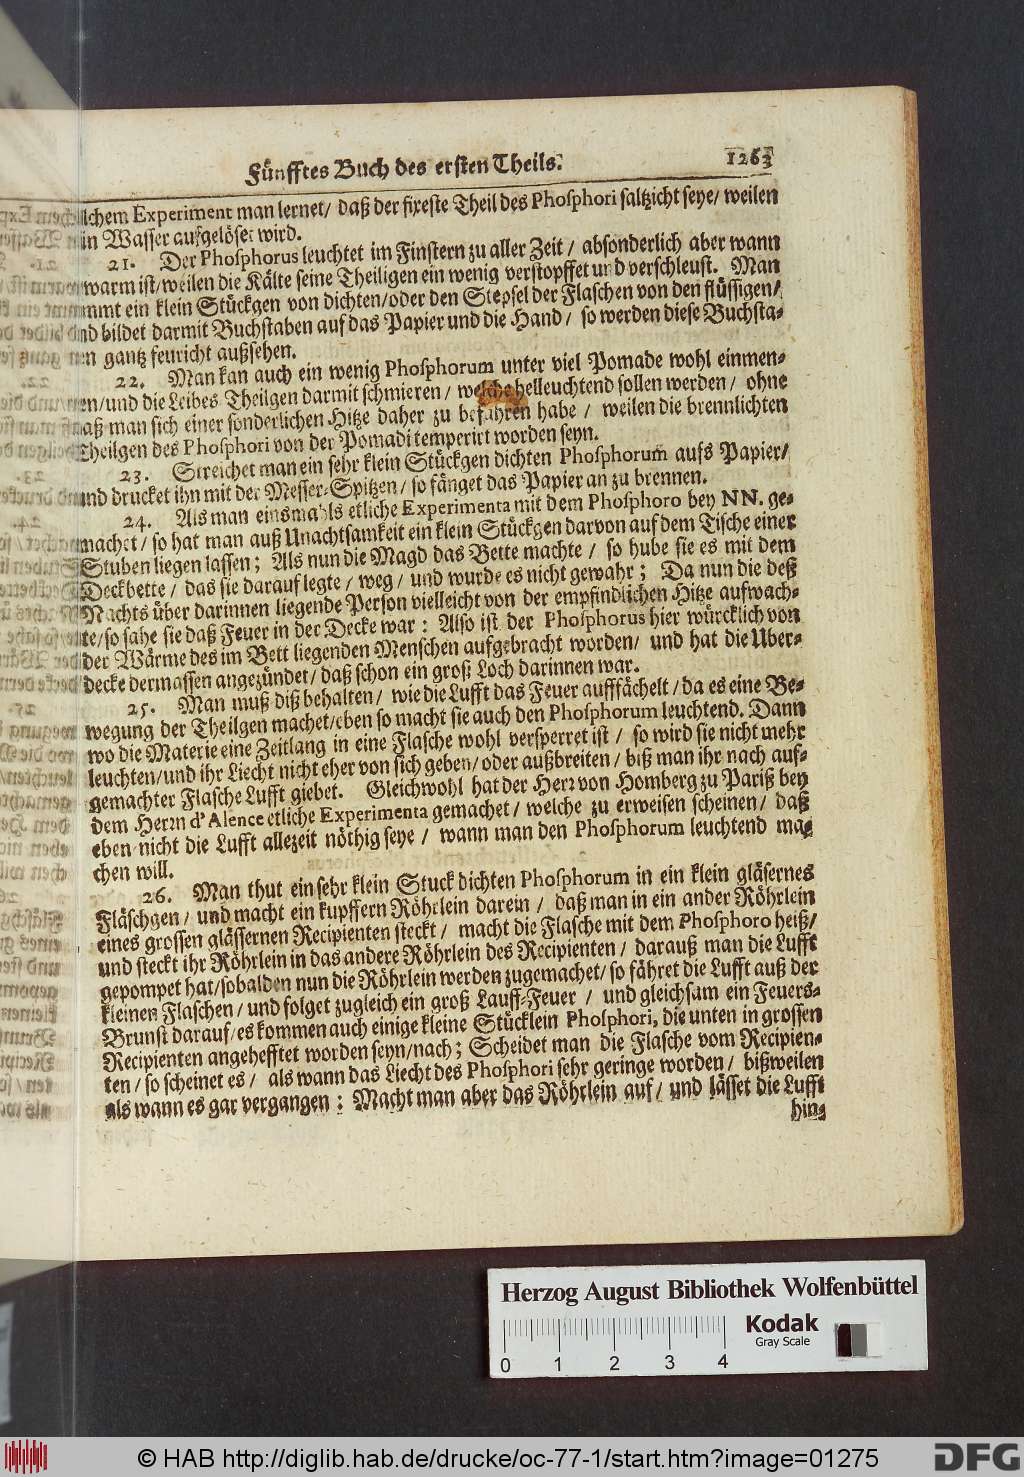 Fünfftes Buch des ersten Theils. 1263
lchem Experiment man lernet/ daß der fixeste Theil des Phosphori saltzicht seye/ weilen
in Wasser aufgelöset wird.
21. Der Phosphorus leuchtet im Finstern zu aller Zeit / absonderlich aber wann
warm ist/ weilen die Kälte seine Theiligen ein wenig verstopffet und verschleust. Man
mmt ein klein Stückgen von dichten/oder den Stepsel der Flaschen von den flüssigen/
nd bildet darmit Buchstaben auf das Papier und die Hand / so werden diese Buchsta-
n gantz feuricht außsehen.
22. Man kan auch ein wenig Phosphorum unter viel Pomade wohl einmen-
en/und die Leibes Theilgen darmit schmieren / welche helleuchtend sollen werden / ohne
aß man sich einer sonderlichen Hitze daher zu befahren habe / weilen die brennlichten
Theilgen des Phosphori von der Pomadi temperirt worden seyn.
23. Streichet man ein sehr klein Stückgen dichten Phosphorum aufs Papier/
und drucket ihn mit der Messer-Spitzen / so fänget das Papier an zu brennen.
24. Als man einsmahls etliche Experimenta mit dem Phosphoro bey NN. ge-
machet / so hat man auß Unachtsamkeit ein klein Stückgen darvon auf dem Tische einer
Stuben liegen lassen ; Als nun die Magd das Bette machte / so hube sie es mit dem
Deckbette / das sie darauf legte / weg / und wurde es nicht gewahr ; Da nun die deß
Nachts über darinnen liegende Person vielleicht von der empfindlichen Hitze aufwach-
te/ so sahe sie daß Feuer in der Decke war : Also ist der Phosphorus hier würcklich von
der Wärme des im Bett liegenden Menschen aufgebracht worden/ und hat die Uber-
decke dermassen angezündet/ daß schon ein groß Loch darinnen war.
25. Man muß diß behalten / wie die Lufft das Feuer auffächelt / da es eine Be-
wegung der Theilgen machet/eben so macht sie auch den Phosphorum leuchtend. Dann
wo die Materie eine Zeitlang in eine Flasche wohl versperret ist / so wird sie nicht mehr
leuchten/und ihr Liecht nicht eher von sich geben/ oder außbreiten / biß man ihr nach auf-
gemachter Flasche Lufft giebet. Gleichwohl hat der Herr von Homberg zu Pariß bey
dem Herrn d'Alence etliche Experimenta gemachet / welche zu erweisen scheinen / daß
eben nicht die Lufft allezeit nöthig seye / wann man den Phosphorum leuchtend ma-
chen will.
26. Man thut ein sehr klein Stuck dichten Phosphorum in ein klein gläsernes
Fläschgen / und macht ein kupffern Röhrlein darein / daß man in ein ander Röhrlein
eines grossen glässernen Recipienten steckt / macht die Flasche mit dem Phosphoro heiß/
und steckt ihr Röhrlein in das andere Röhrlein des Recipienten / darauß man die Lufft
gepompet hat/sobalden nun die Röhrlein werden zugemachet/ so fähret die Lufft auß der
kleinen Flaschen / und folget zugleich ein groß Lauff-Feuer / und gleichsam ein Feuers-
Brunst darauf/ es kommen auch einige kleine Stücklein Phosphori, die unten in grossen
Recipienten angehefftet worden seyn/nach ; Scheidet man die Flasche vom Recipien-
ten / so scheinet es / als wann das Liecht des Phosphori sehr geringe worden / bißweilen
als wann es gar vergangen : Macht man aber das Röhrlein auf / und lässet die Lufft
hin-
Herzog August Bibliothek Wolfenbüttel
Kodak
Gray Scale
0 1 2 3 4
© HAB http://diglib.hab.de/drucke/oc-77-1/start.htm?image=01275
DFG